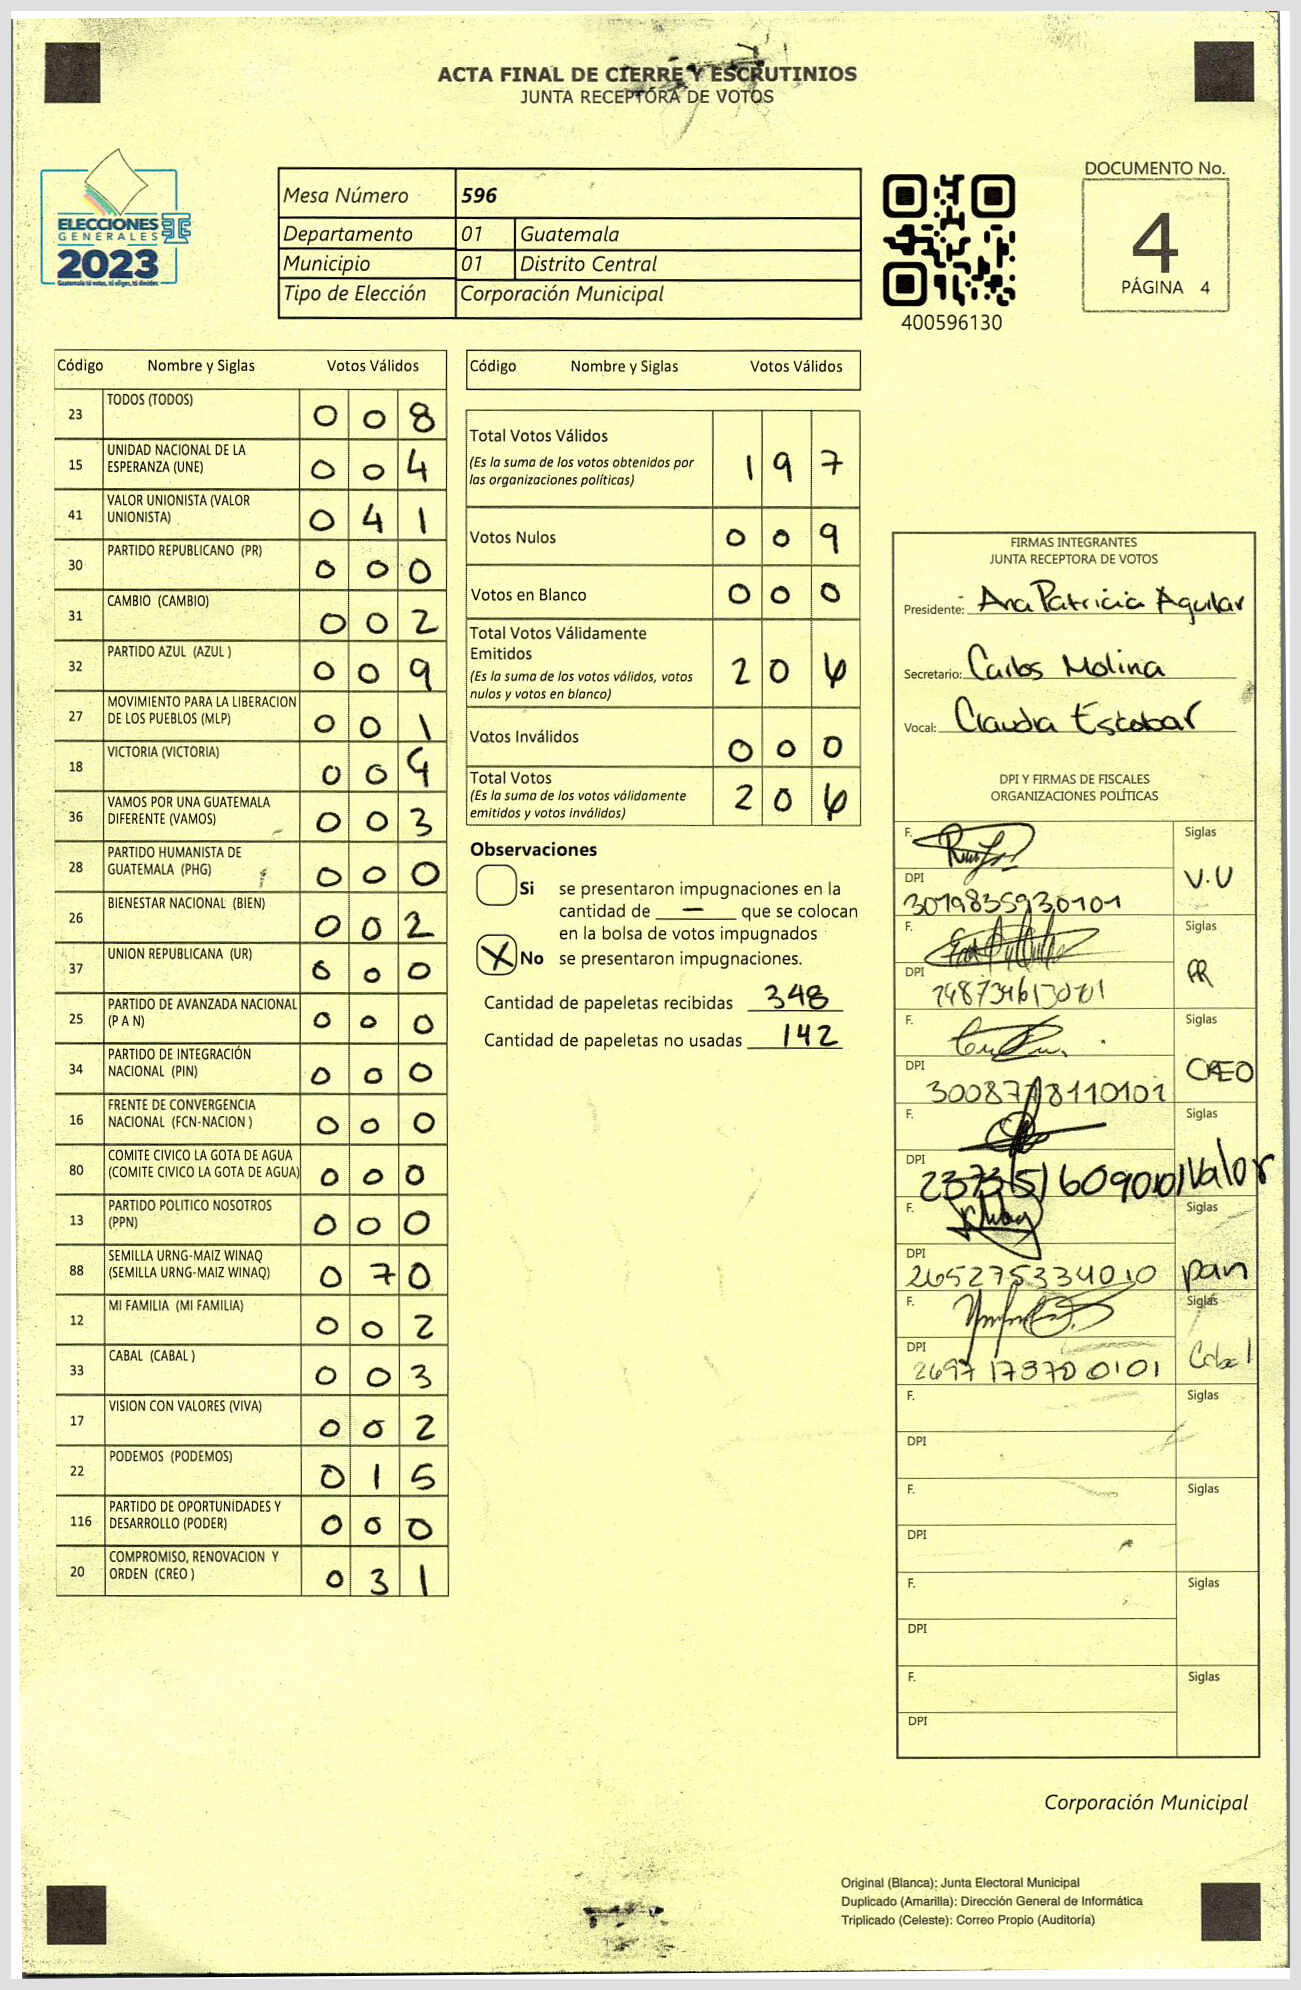 ACTA FINAL DE CIERRE Y ESCRUTINIOS
JUNTA RECEPTORA DE VOTOS
ELECCIONES
GENERALES
2023
Guatemala tú votas, tú eliges, tú decides
Mesa Número 596
Departamento 01 Guatemala
Municipio 01 Distrito Central
Tipo de Elección Corporación Municipal
400596130
DOCUMENTO No.
4
PÁGINA 4
Código Nombre y Siglas Votos Válidos
23 TODOS (TODOS) 0 0 8
15 UNIDAD NACIONAL DE LA
ESPERANZA (UNE) 0 0 4
41 VALOR UNIONISTA (VALOR
UNIONISTA) 0 4 1
30 PARTIDO REPUBLICANO (PR) 0 0 0
31 CAMBIO (CAMBIO) 0 0 2
32 PARTIDO AZUL (AZUL ) 0 0 9
27 MOVIMIENTO PARA LA LIBERACION
DE LOS PUEBLOS (MLP) 0 0 1
18 VICTORIA (VICTORIA) 0 0
36 VAMOS POR UNA GUATEMALA
DIFERENTE (VAMOS) 0 0 3
28 PARTIDO HUMANISTA DE
GUATEMALA (PHG) 0 0 0
26 BIENESTAR NACIONAL (BIEN) 0 0 2
37 UNION REPUBLICANA (UR) 0 0 0
25 PARTIDO DE AVANZADA NACIONAL
(P A N) 0 0 0
34 PARTIDO DE INTEGRACIÓN
NACIONAL (PIN) 0 0 0
16 FRENTE DE CONVERGENCIA
NACIONAL (FCN-NACION ) 0 0 0
80 COMITE CIVICO LA GOTA DE AGUA
(COMITE CIVICO LA GOTA DE AGUA) 0 0 0
13 PARTIDO POLITICO NOSOTROS
(PPN) 0 0 0
88 SEMILLA URNG-MAIZ WINAQ
(SEMILLA URNG-MAIZ WINAQ) 0 7 0
12 MI FAMILIA (MI FAMILIA) 0 0 2
33 CABAL (CABAL ) 0 0 3
17 VISION CON VALORES (VIVA) 0 0 2
22 PODEMOS (PODEMOS) 0 1 5
116 PARTIDO DE OPORTUNIDADES Y
DESARROLLO (PODER) 0 0 0
20 COMPROMISO, RENOVACION Y
ORDEN (CREO ) 0 3 1
Código Nombre y Siglas Votos Válidos
Total Votos Válidos 1 9 7
(Es la suma de los votos obtenidos por
las organizaciones políticas)
Votos Nulos 0 0 9
Votos en Blanco 0 0 0
Total Votos Válidamente
Emitidos 2 0 6
(Es la suma de los votos válidos, votos
nulos y votos en blanco)
Votos Inválidos 0 0 0
Total Votos 2 0 6
(Es la suma de los votos válidamente
emitidos y votos inválidos)
Observaciones
Si se presentaron impugnaciones en la
cantidad de — que se colocan
en la bolsa de votos impugnados
X No se presentaron impugnaciones.
Cantidad de papeletas recibidas 348
Cantidad de papeletas no usadas 142
FIRMAS INTEGRANTES
JUNTA RECEPTORA DE VOTOS
Presidente: Ana Patricia Aguilar
Secretario: Carlos Molina
Vocal: Claudia Escobar
DPI Y FIRMAS DE FISCALES
ORGANIZACIONES POLÍTICAS
F. Siglas
V.U
DPI 3019835930101
F. Siglas
PR
DPI
F. Siglas
CREO
DPI
F. Siglas
Valor
DPI
F. Siglas
pan
DPI 265275334010
F. Siglas
Cabal
DPI 2697178700101
F. Siglas
DPI
F. Siglas
DPI
F. Siglas
DPI
F. Siglas
DPI
Corporación Municipal
Original (Blanca): Junta Electoral Municipal
Duplicado (Amarilla): Dirección General de Informática
Triplicado (Celeste): Correo Propio (Auditoría)